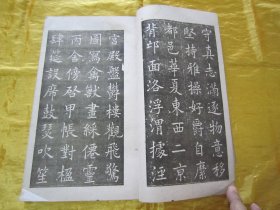 守真志滿逐物意移
堅持雅操好爵自縻
都邑華夏東西二京
背邙面洛浮渭據涇
宮殿盤鬱樓觀飛驚
圖寫禽獸畫綵僊靈
丙舍傍啓甲帳對楹
肆筵設席鼓瑟吹笙